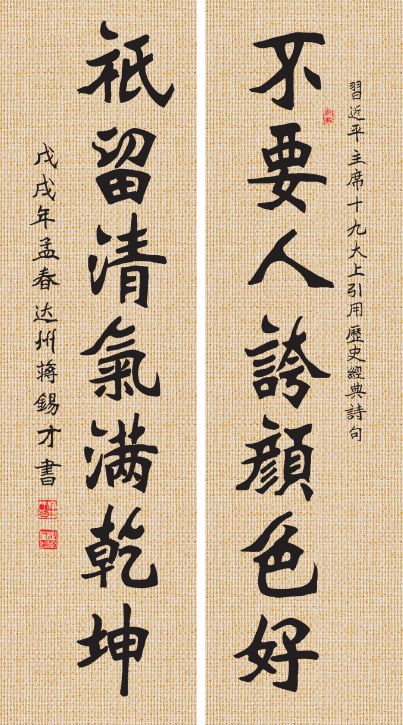 習近平主席十九大上引用歷史經典詩句
不要人誇顏色好
祇留清氣满乾坤
戊戌年孟春达州蒋錫才書